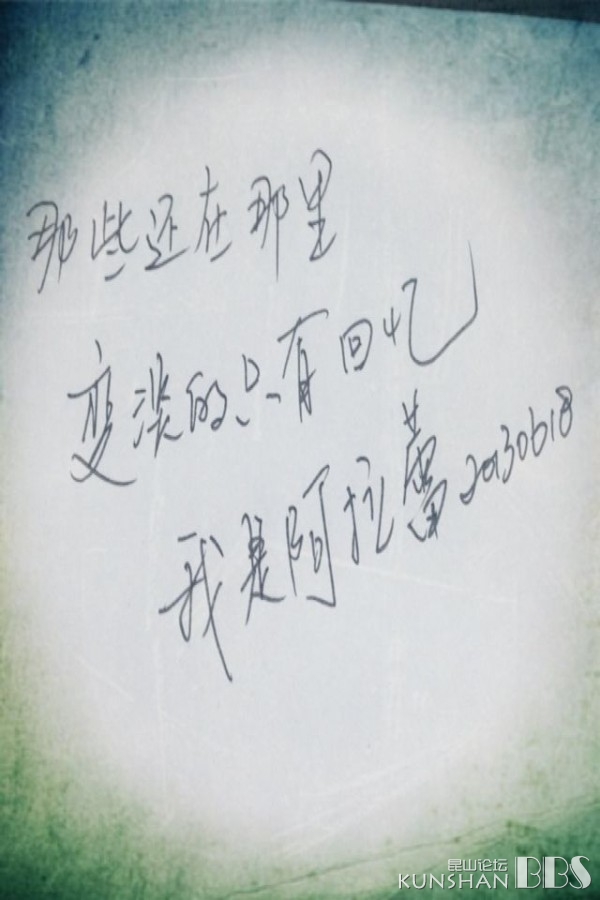 那些还在那里
变淡的只有回忆
我是阿拉蕾20130618
昆山论坛
KUNSHAN BBS